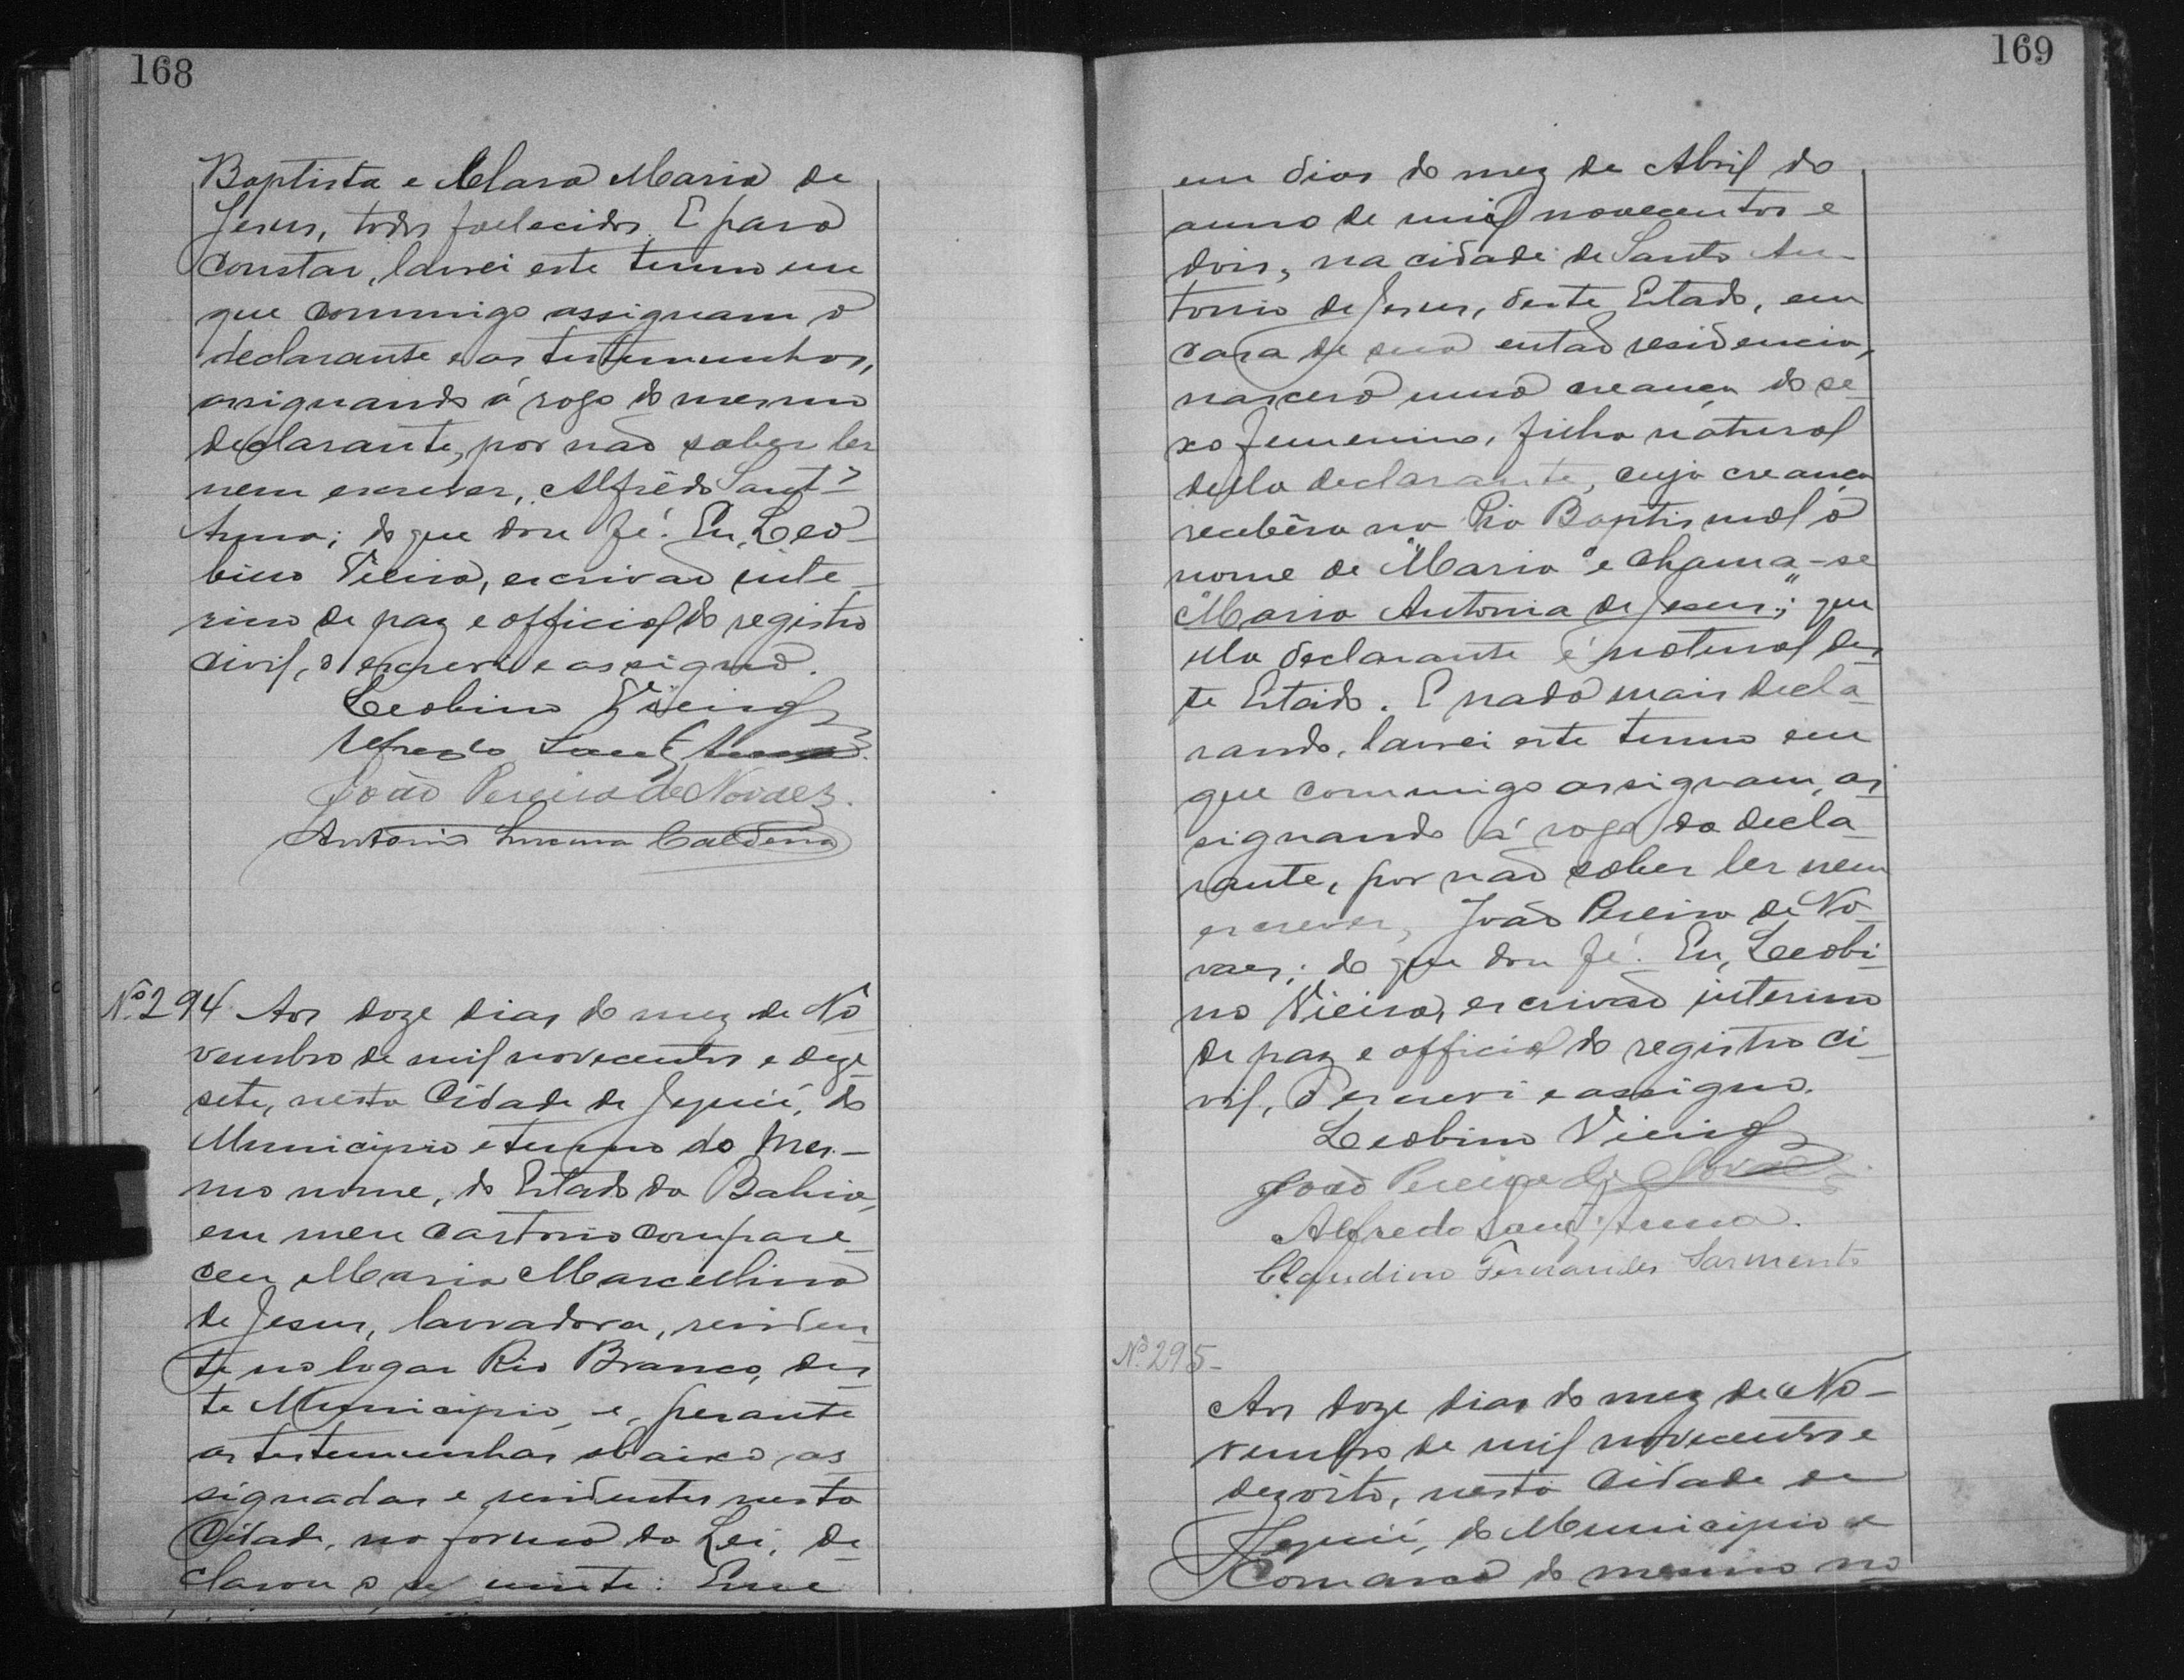 168
Baptista e Clara Maria de
Jesus, todos fallecidos. E para
constar, lavrei este termo em
que commigo assignam o
declarante e as testemunhas,
assignando á rogo do mesmo
declarante, por não saber ler
nem escrever, Alfrêdo Sant'
Anna; do que dou fé. Eu, Leo-
bino Vieira, escrivão inte-
rino de paz e official do registro
civil, o escrevi e assigno.
Leobino Vieira
Alfredo Sant'Anna
João Pereira de Novaes.
Antonio Lucena Caldeira
Nº 294 Aos doze dias do mez de No-
vembro de mil novecentos e deze-
sete, nesta Cidade de Jequié, do
Municipio e termo do mes-
mo nome, do Estado da Bahia,
em meu cartorio compare-
ceu Maria Marcellina
de Jesus, lavradora, residen-
te no logar Rio Branco, des-
te Municipio, e, perante
as testemunhas abaixo as-
signadas e residentes nesta
Cidade, na forma da Lei, de-
clarou o seguinte: Que
169
em dias do mez de Abril do
anno de mil novecentos e
dois, na cidade de Santo An-
tonio de Jesus, deste Estado, em
casa de sua então residencia,
nascera uma creança do se-
xo femenino, filha natural
della declarante, cuja creança
recebêra na Pia Baptismal o
nome de "Maria" e chama-se
"Maria Antonia de Jesus"; que
ella declarante é natural des-
te Estado. E nada mais decla-
rando, lavrei este termo em
que commigo assignam, as-
signando á rogo da decla-
rante, por não saber ler nem
escrever, João Pereira de No-
vaes; do que dou fé. Eu, Leobi-
no Vieira, escrivão interino
de paz e official do registro ci-
vil, o escrevi e assigno.
Leobino Vieira
João Pereira de Novaes
Alfredo Sant'Anna.
Claudino Fernandes Sarmento
Nº 295-
Aos doze dias do mez de No-
vembro de mil novecentos e
dezoito, nesta Cidade de
Jequié, do Municipio e
Comarca do mesmo no